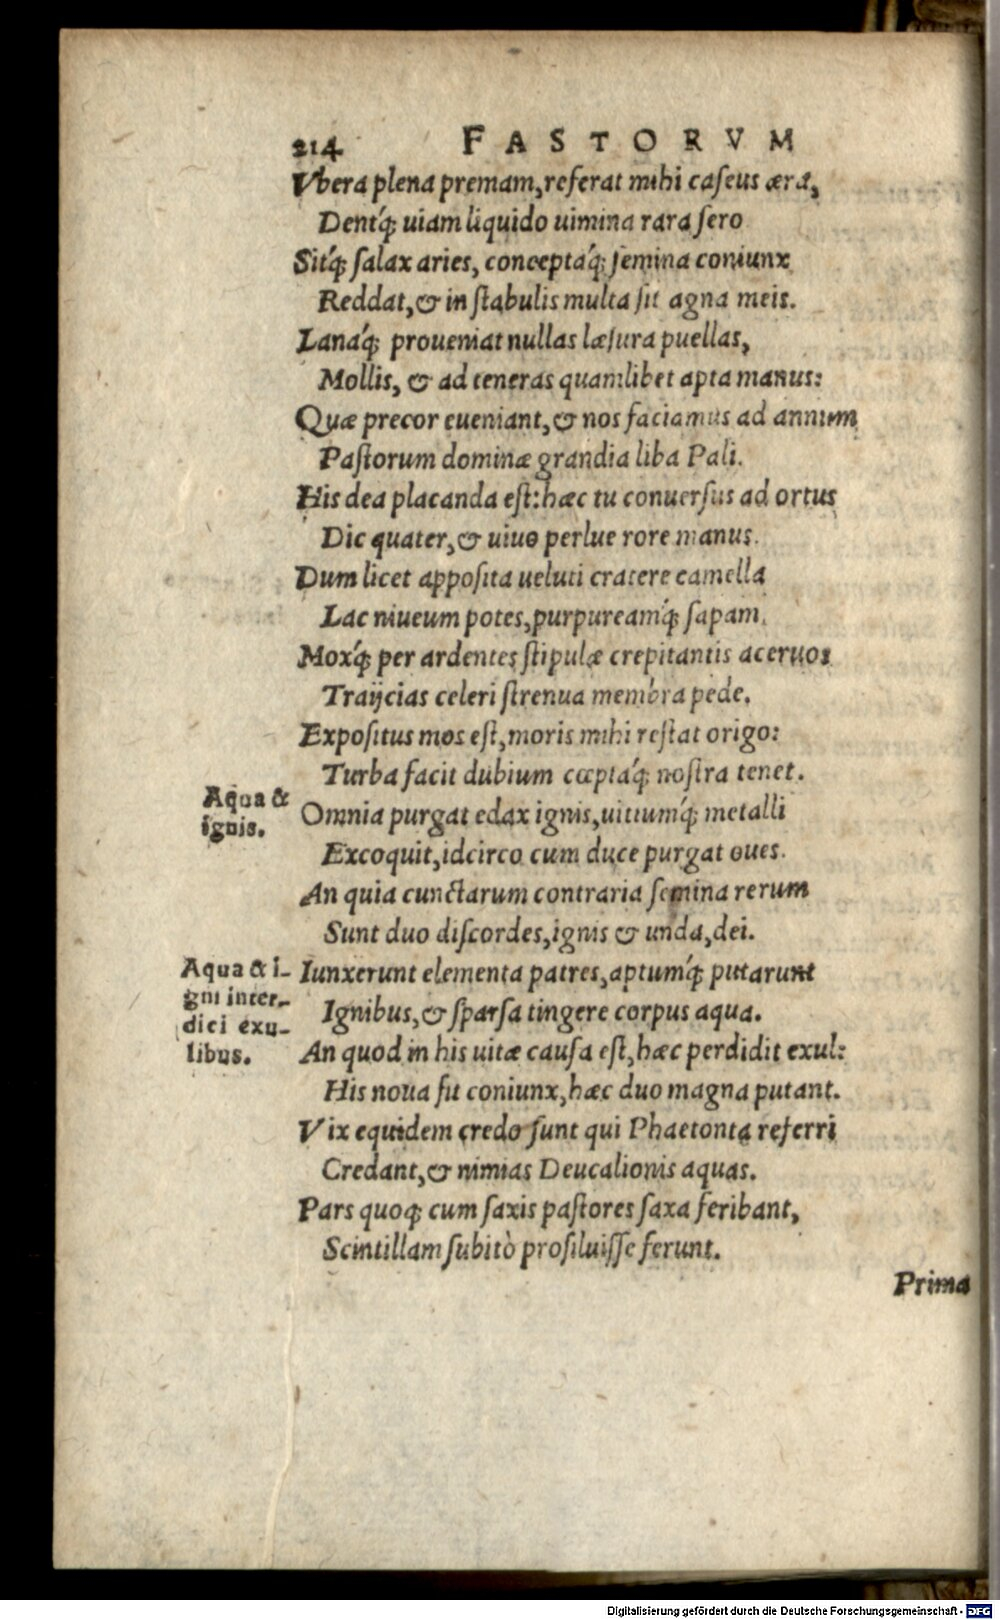 214 FASTORVM
Vbera plena premam, referat mihi caſeus æra,
Dentq́; uiam liquido uimina rara ſero
Sitq́; ſalax aries, conceptaq́; ſemina coniunx
Reddat, & in ſtabulis multa ſit agna meis.
Lanaq́; proueniat nullas læſura puellas,
Mollis, & ad teneras quamlibet apta manus:
Quæ precor eueniant, & nos faciamus ad annum
Paſtorum dominæ grandia liba Pali.
His dea placanda eſt: hæc tu conuerſus ad ortus
Dic quater, & uiuo perlue rore manus.
Dum licet appoſita ueluti cratere camella
Lac niueum potes, purpureamq́; ſapam.
Moxq́; per ardentes ſtipulæ crepitantis aceruos
Traijcias celeri ſtrenua membra pede.
Expoſitus mos eſt, moris mihi reſtat origo:
Turba facit dubium cœptaq́; noſtra tenet.
Aqua &
ignis.
Omnia purgat edax ignis, uitiumq́; metalli
Excoquit, idcirco cum duce purgat oues.
An quia cunctarum contraria ſemina rerum
Sunt duo diſcordes, ignis & unda, dei.
Aqua & i-
gni inter-
dici exu-
libus.
Iunxerunt elementa patres, aptumq́; putarunt
Ignibus, & ſparſa tingere corpus aqua.
An quod in his uitæ cauſa eſt, hæc perdidit exul:
His noua fit coniunx, hæc duo magna putant.
Vix equidem credo ſunt qui Phaetonta referri
Credant, & nimias Deucalionis aquas.
Pars quoq; cum ſaxis paſtores ſaxa feribant,
Scintillam ſubitò proſiluiſſe ferunt.
Prima
Digitalisierung gefördert durch die Deutsche Forschungsgemeinschaft - DFG